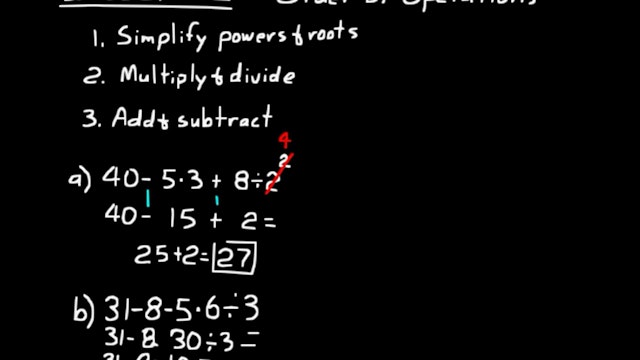 Order of Operations
1. Simplify powers & roots
2. Multiply & divide
3. Add & subtract
a) 40 - 5·3 + 8 ÷ 2² 4
40 - 15 + 2 =
25 + 2 = 27
b) 31 - 8 - 5·6 ÷ 3
31 - 8 30 ÷ 3 =